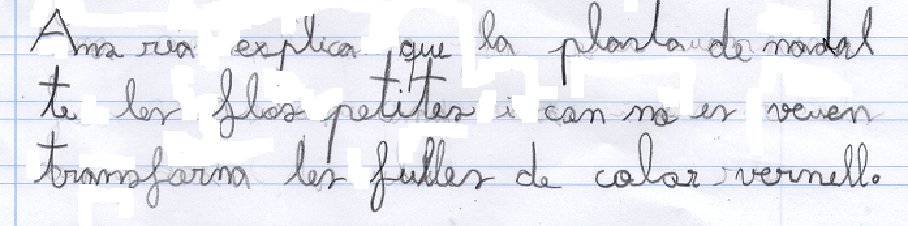 Ana ria explica que la planta de nadal
te les flos petites i can no es veuen
transforma les fulles de color vermell.